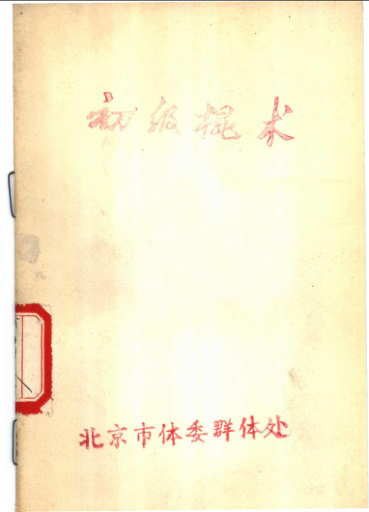 初级棍术
北京市体委群体处